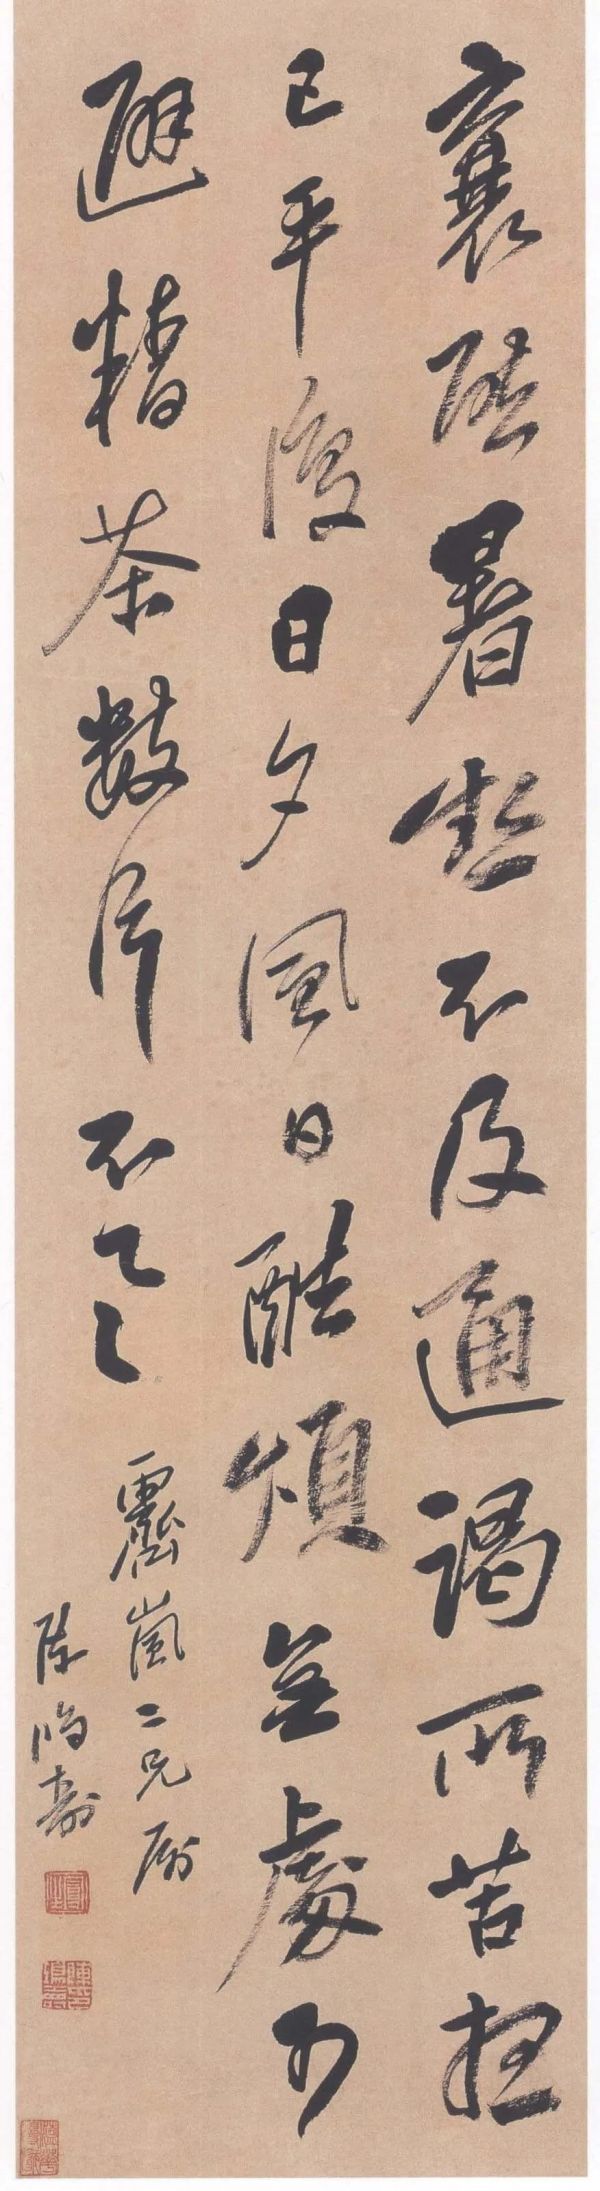 襄啓暑熱不及通謁所苦想
已平復日夕風日酷煩無處可
避精茶數片不乙乙
霽嵐二兄屬
陳鴻壽